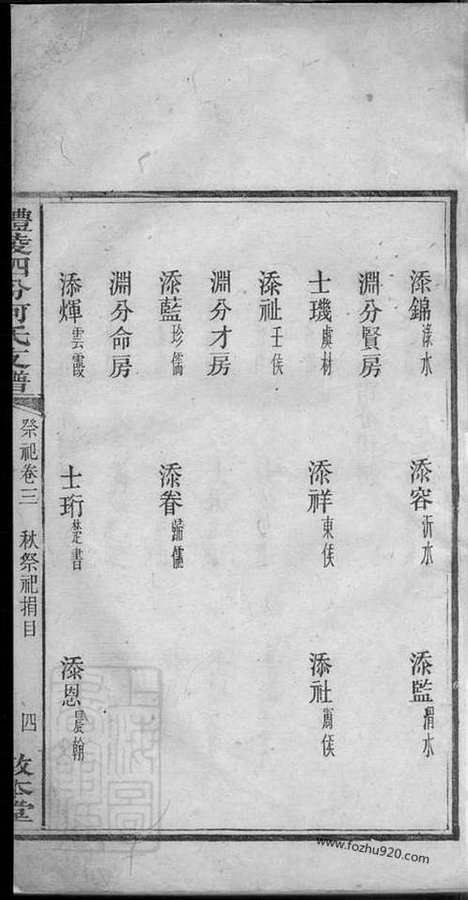 添錦 漾水 添容 沂水 添監 渭水
淵分賢房
士璣 虞材 添祥 東侯 添社 蕭侯
添祉 壬侯
淵分才房
添藍 珍儒 添眷 歸儒
淵分命房
添煇 雲霞 士珩 楚書 添恩 晨翰
醴陵四分何氏支譜 祭祀卷三 秋祭祀捐目 四 敦本堂
www.fozhu920.com